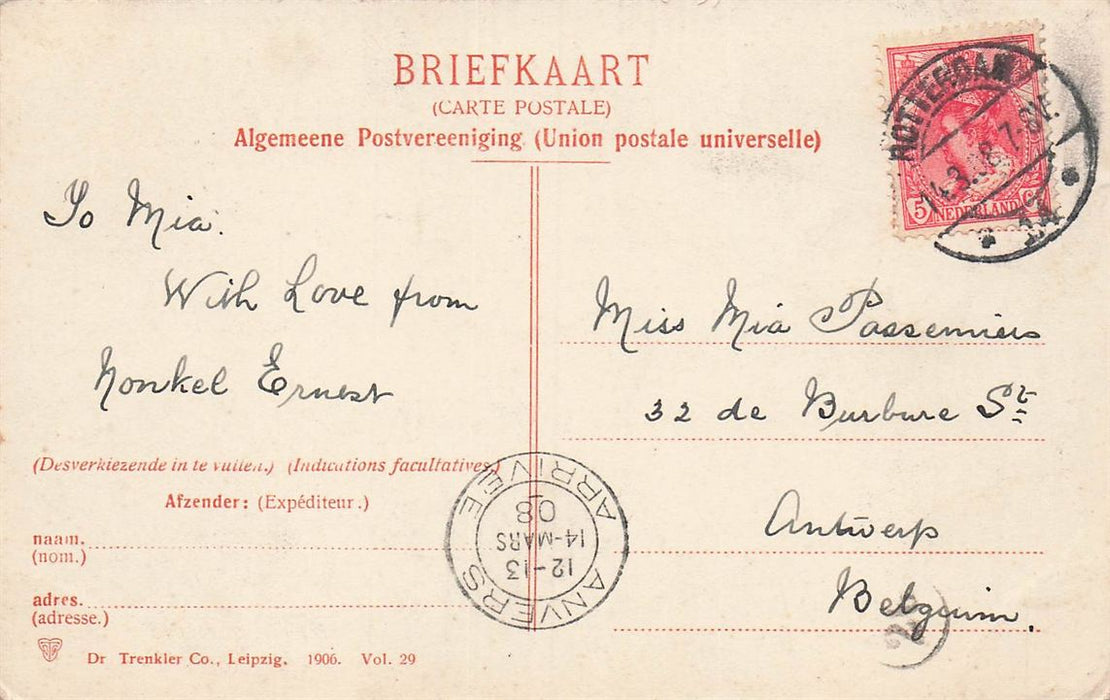 BRIEFKAART
(CARTE POSTALE)
Algemeene Postvereeniging (Union postale universelle)
ROTTERDAM
14.3.08 7-8V.
14
5 NEDERLAND C
To Mia.
With Love from
Nonkel Ernest
Miss Mia Passemiers
32 de Burbure St
Antwerp
Belguim.
(Desverkiezende in te vullen.) (Indications facultatives.)
Afzender: (Expéditeur.)
naam.
(nom.)
adres.
(adresse.)
ANVERS
12-13
14-MARS
08
ARRIVEE
Dr Trenkler Co., Leipzig. 1906. Vol. 29